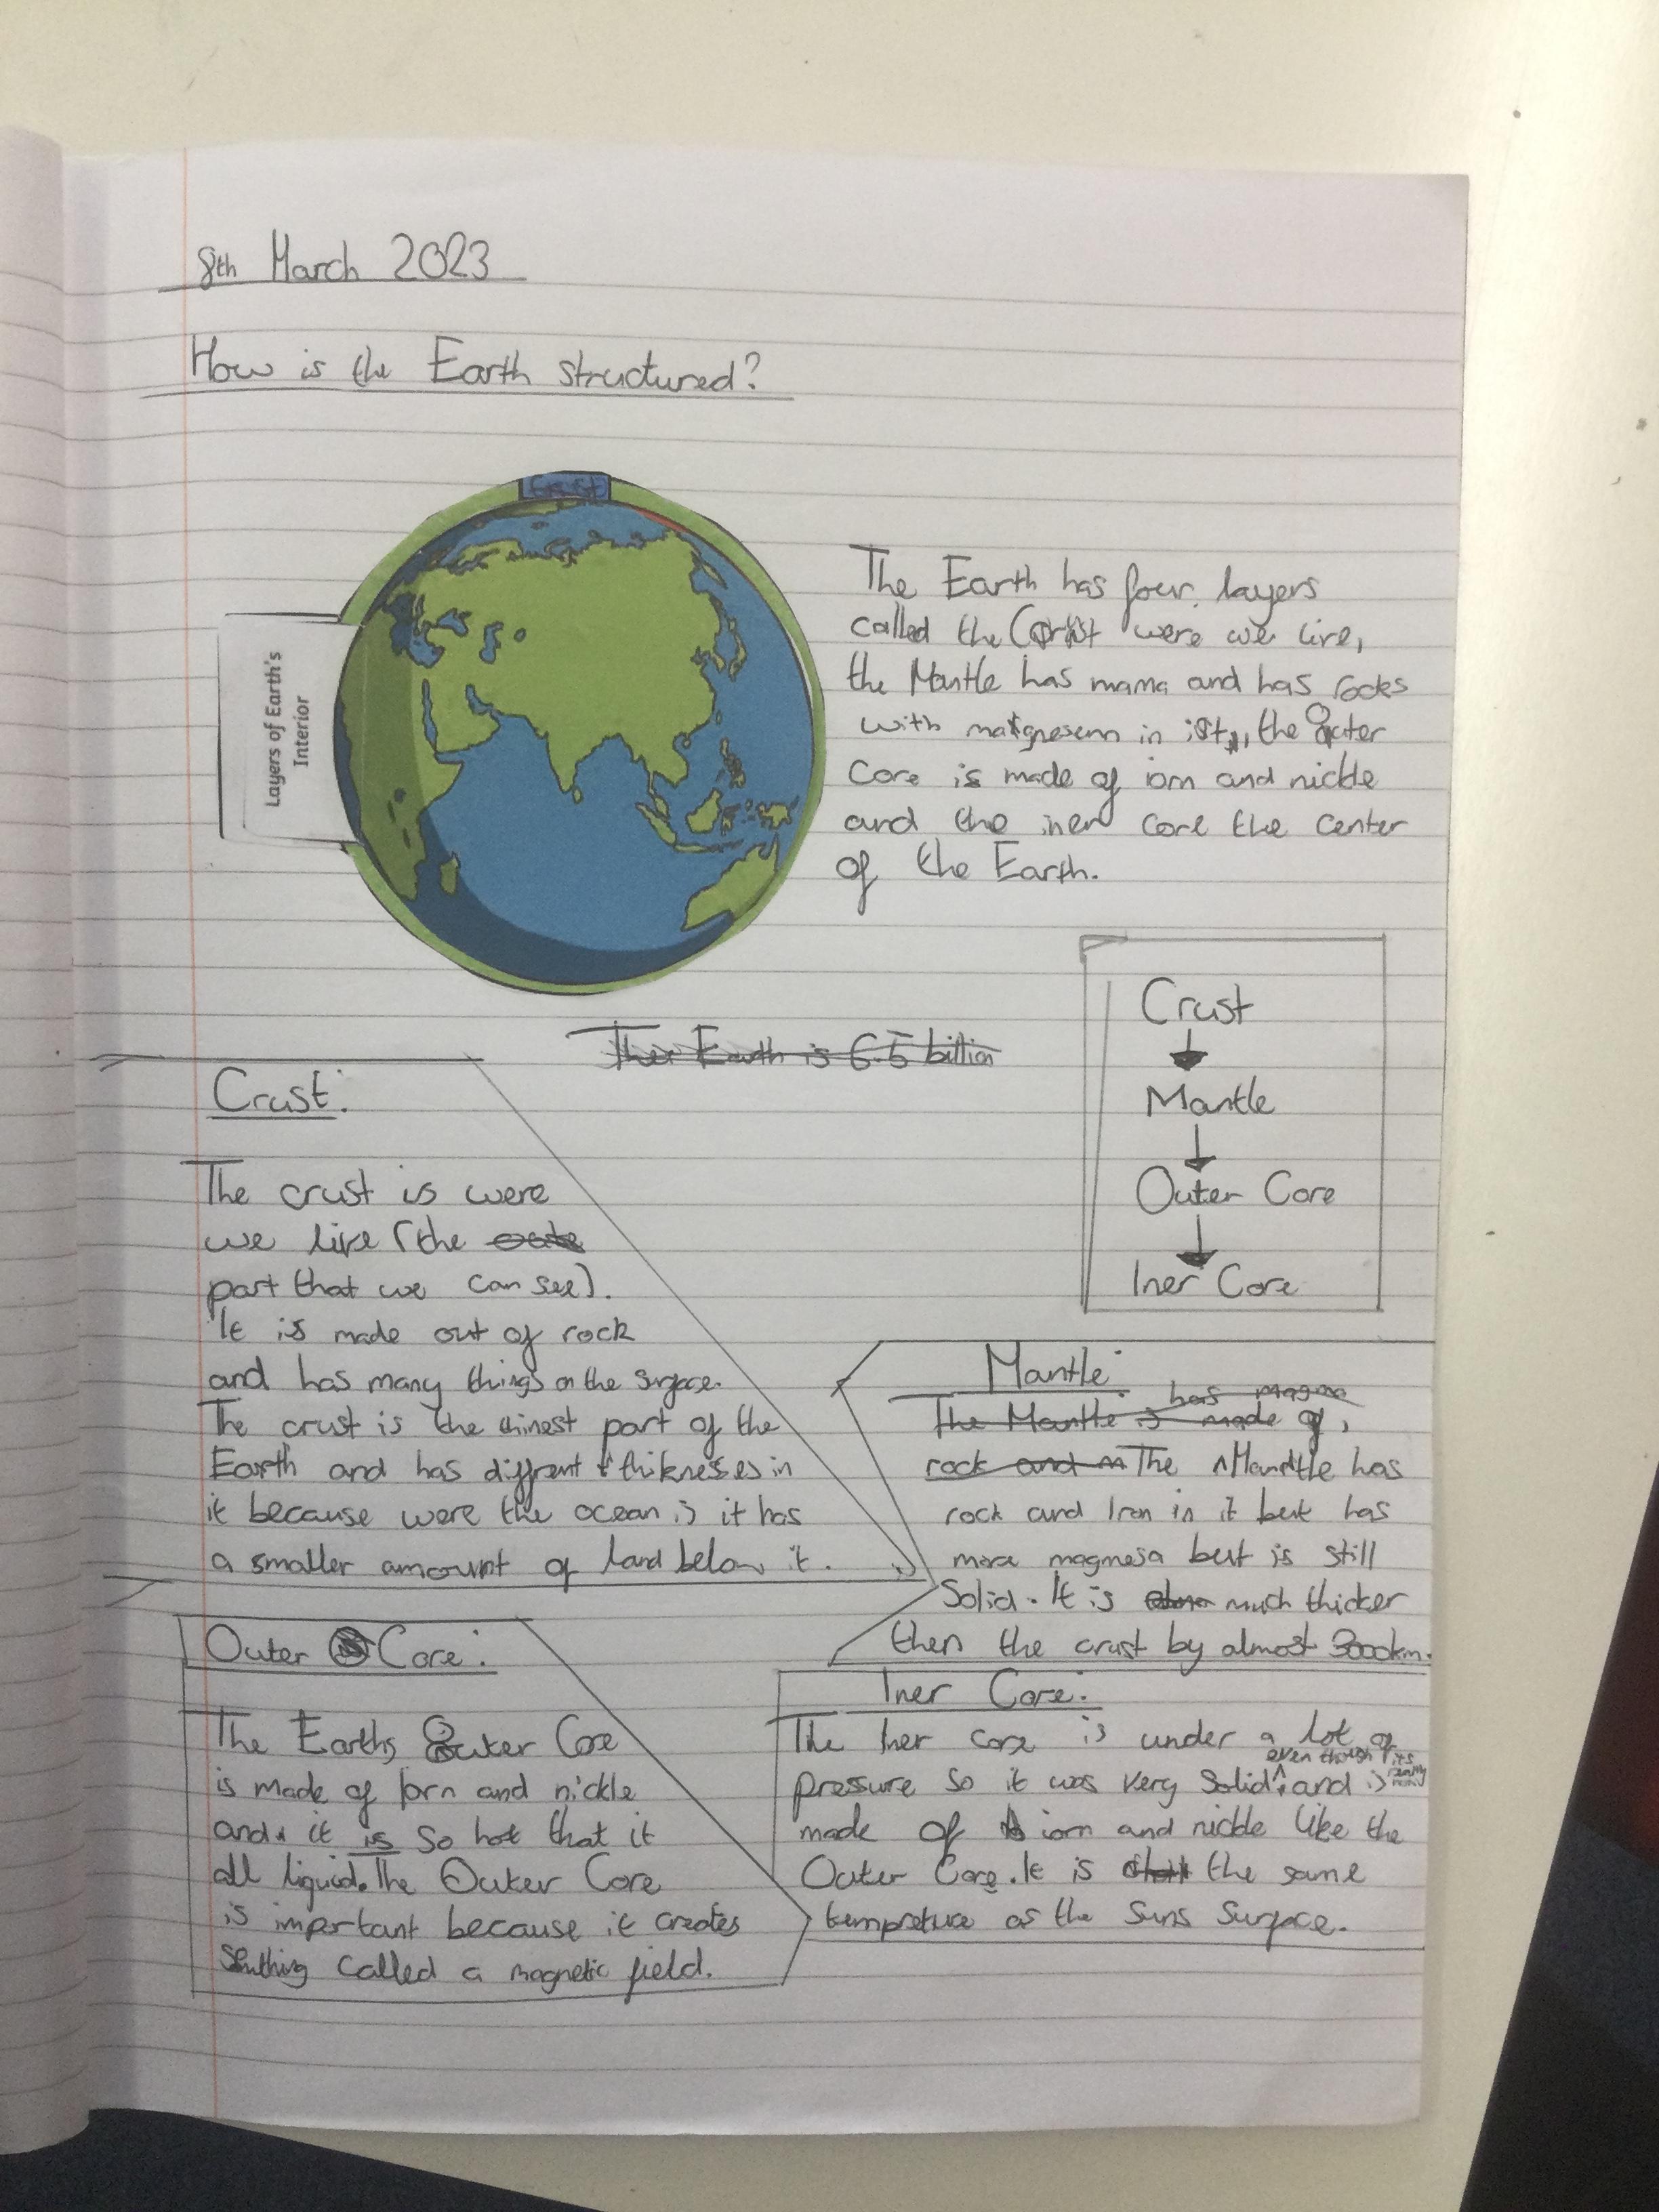 8th March 2023
How is the Earth structured?
Crust
Layers of Earth's
Interior
The Earth has four layers
called the Crust were we live,
the Mantle has mama and has rocks
with in it, the Outer
Core is made of iorn and nickle
and the iner core the center
of the Earth.
Crust
Mantle
Outer Core
Iner Core
Their Earth is 6.5 billion
Crust:
The crust is were
we live (the
part that we can see).
It is made out of rock
and has many things on the surface.
The crust is the thinest part of the
Earth and has diffrent thiknesses in
it because were the ocean is it has
a smaller amount of land below it.
Mantle:
has magma
The Mantle is made of,
rock and m The Mantle has
rock and Iron in it but has
more magnesa but is still
Solid. It is much thicker
then the crust by almost 3000km.
Outer Core:
The Earths Outer Core
is made of Iorn and nickle
and it is so hot that it
all liquid. The Outer Core
is important because it creates
called a magnetic field.
Iner Core:
The Iner core is under a lot of
even though its
really
pressure so it was very solid and is
made of iorn and nickle like the
Outer Core. It is the same
tempreture as the Suns Surface.